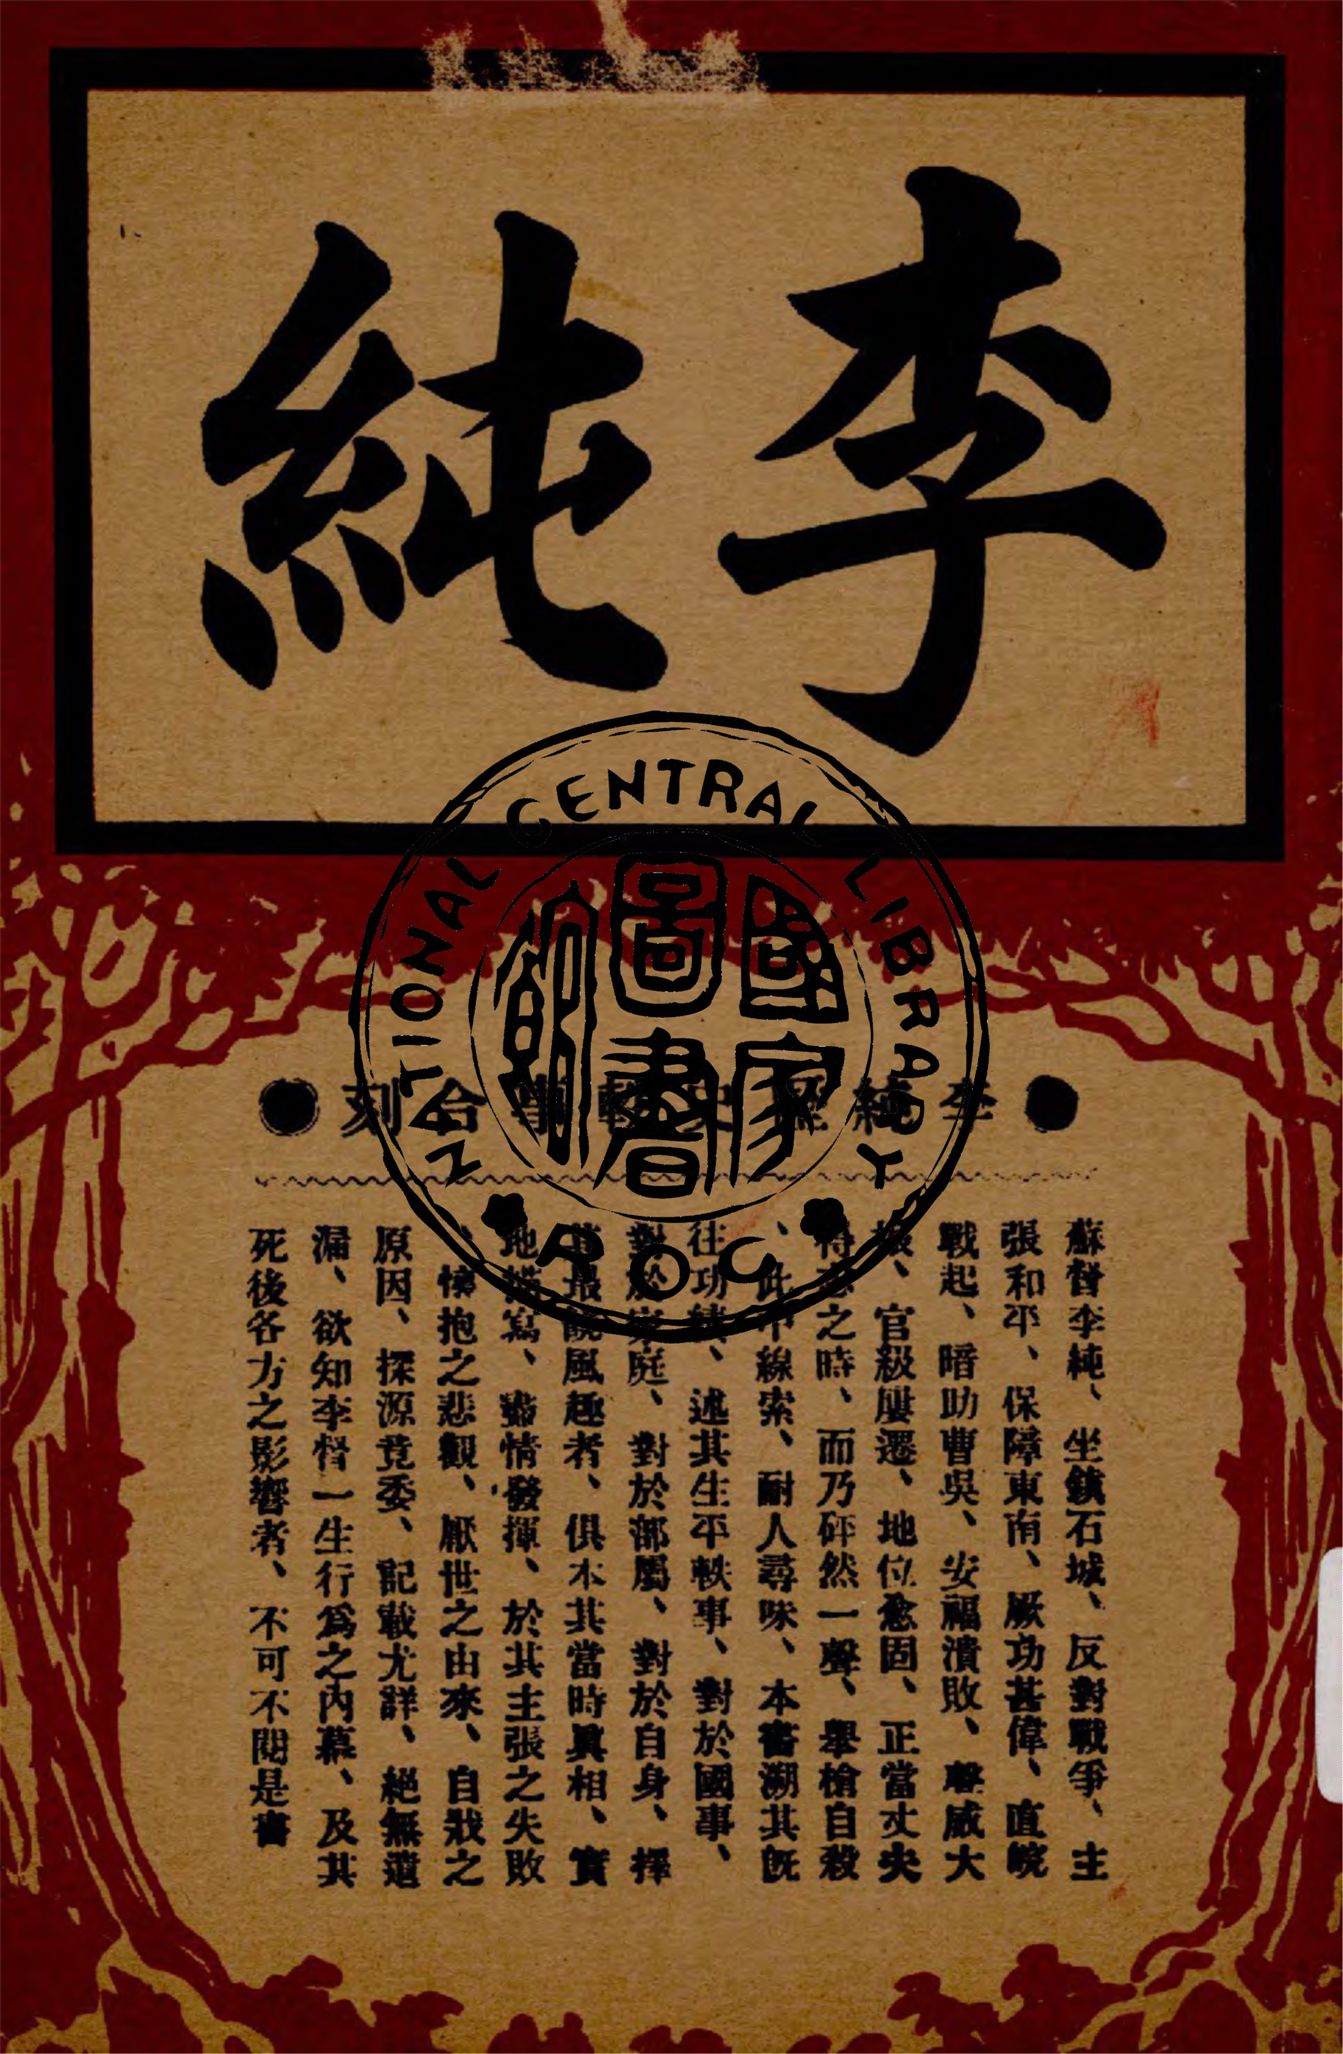 李純
NATIONAL CENTRAL LIBRARY
國家圖書館
ROC
李純歷史軼事合刻
蘇督李純、坐鎮石城、反對戰爭、主
張和平、保障東南、厥功甚偉、直皖
戰起、暗助曹吳、安福潰敗、聲威大
振、官級屢遷、地位愈固、正當丈夫
得意之時、而乃砰然一聲、舉槍自殺
、此中線索、耐人尋味、本書溯其既
往功績、述其生平軼事、對於國事、
對於家庭、對於部屬、對於自身、擇
其最饒風趣者、俱本其當時眞相、實
地描寫、盡情發揮、於其主張之失敗
、懷抱之悲觀、厭世之由來、自戕之
原因、探源竟委、記載尤詳、絕無遺
漏、欲知李督一生行爲之內幕、及其
死後各方之影響者、不可不閱是書